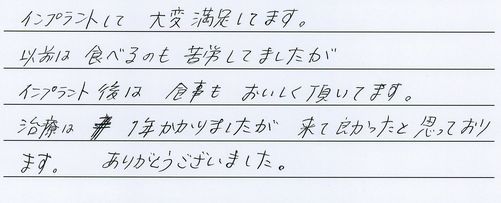 インプラントして 大変満足してます。
以前は食べるのも苦労してましたが
インプラント後は 食事も おいしく頂いてます。
治療は 1年かかりましたが 来て良かったと思っており
ます。 ありがとうございました。